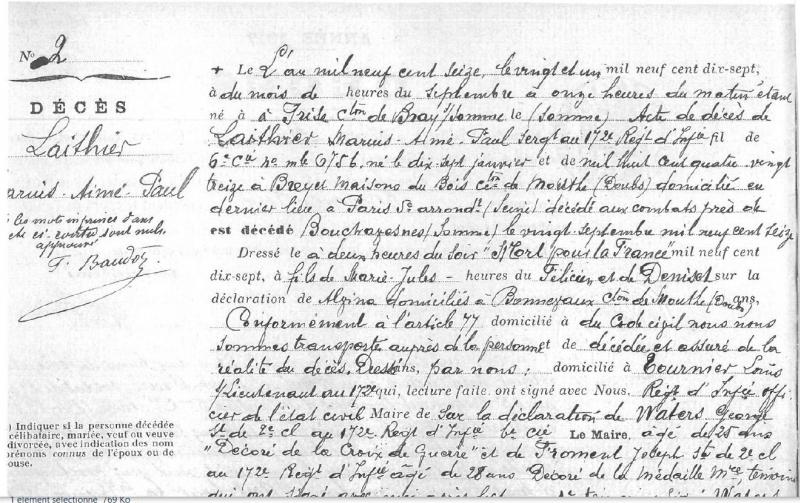 No 2
DÉCÈS
Laithier
Marius-Aimé-Paul
les mots imprimés dans
cet acte ci-contre sont nuls
approuvé
F. Baudot
(1) Indiquer si la personne décédée
célibataire, mariée, veuf ou veuve
divorcée, avec indication des nom
prénoms connus de l'époux ou de
ouse.
+ Le L'an mil neuf cent seize, le vingt et un mil neuf cent dix-sept,
à du mois de heures du septembre à onze heures du matin étant
né à à Frise cton de Bray s/Somme le (Somme) Acte de décès de
Laithier Marius-Aimé-Paul Sergt au 172e Regt d'Infie fil de
6e Cie No mle 6756. né le dix-sept janvier et de mil huit cent quatre vingt
treize à Breyet Maisons du Bois cton de Mouthe (Doubs) domicilié en
dernier lieu à Paris 5e arrondt (Seine) décédé aux combats près de
est décédé Bouchavesnes (Somme) le vingt septembre mil neuf cent seize
Dressé le à deux heures du soir "Mort pour la France" mil neuf cent
dix-sept, à fils de Marie-Jules - heures du Félicien et de Deniset sur la
déclaration de Alzina domiciliés à Bonnevaux cton de Mouthe (Doubs) ans,
Conformément à l'article 77 domicilié à du Code civil nous nous
sommes transporté auprès de la personne et de décédée et assuré de la
réalité du décès, Dressé ans, par nous ; domicilié à Tournier Louis
s/Lieutenant au 172e qui, lecture faite ont signé avec Nous, Regt d'Infie offi-
cier de l'état civil Maire de Sur la déclaration de Waters George
St de 2e cl au 172e Regt d'Infie 6e Cie Le Maire, âgé de 25 ans
"Décoré de la Croix de Guerre" et de Froment Joseph St de 2e cl
au 172e Regt d'Infie âgé de 28 ans Décoré de la Médaille Mre, témoins
qui ont signé avec
1 element selectionne 769 Ko